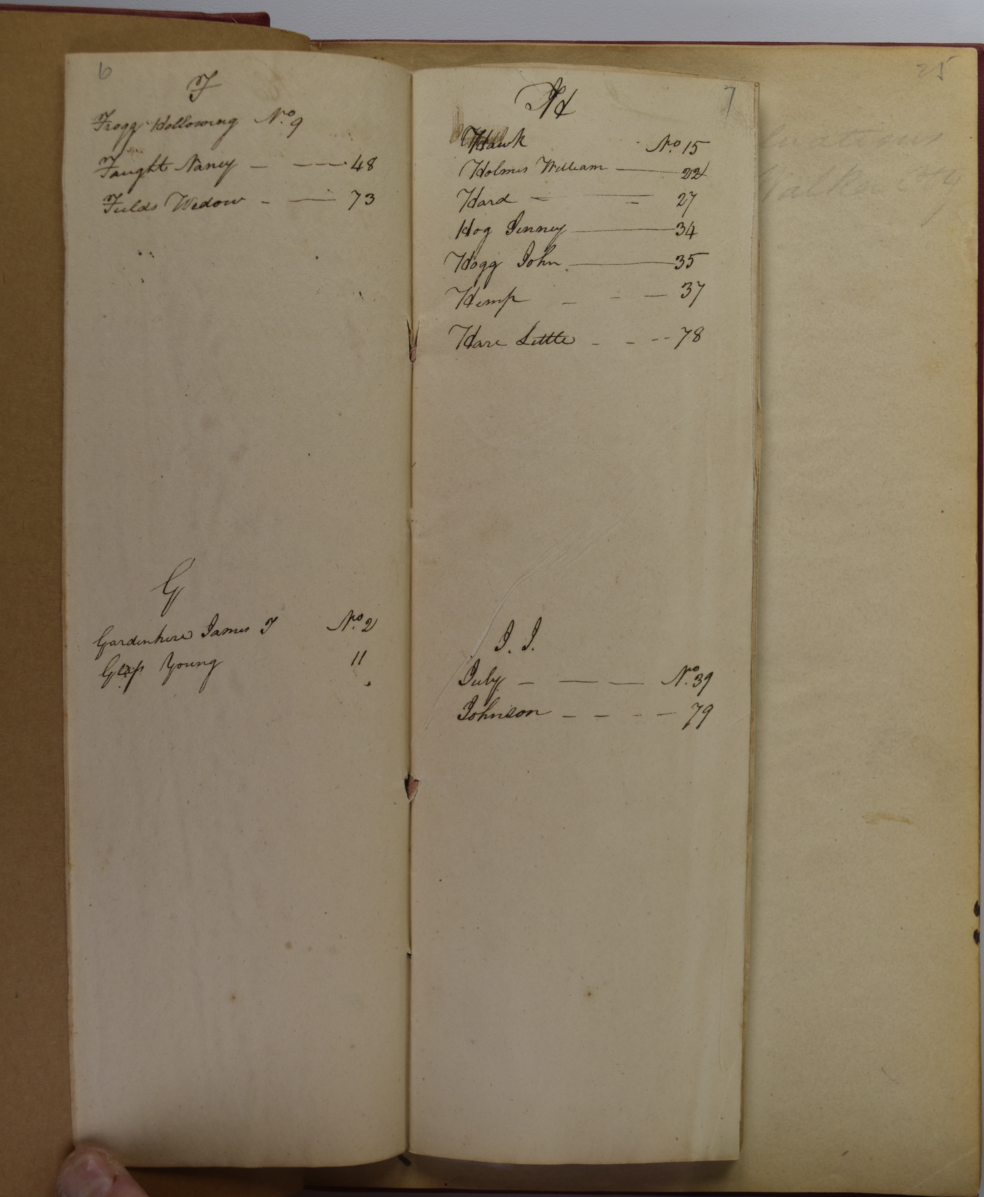 6
F
Frogg Hollowing No. 9
Faught Nancy — — 48
Fields Widow — — 73
G
Gardenhire James T No. 2
Young 11
7
H
Hawk No. 15
Holmes William — 22
Hard — — 27
Hog Jinney — 34
Hogg John — 35
Hemp — — — 37
Hare Little — — — 78
I. J.
July — — — No. 39
Johnson — — — — 79
25